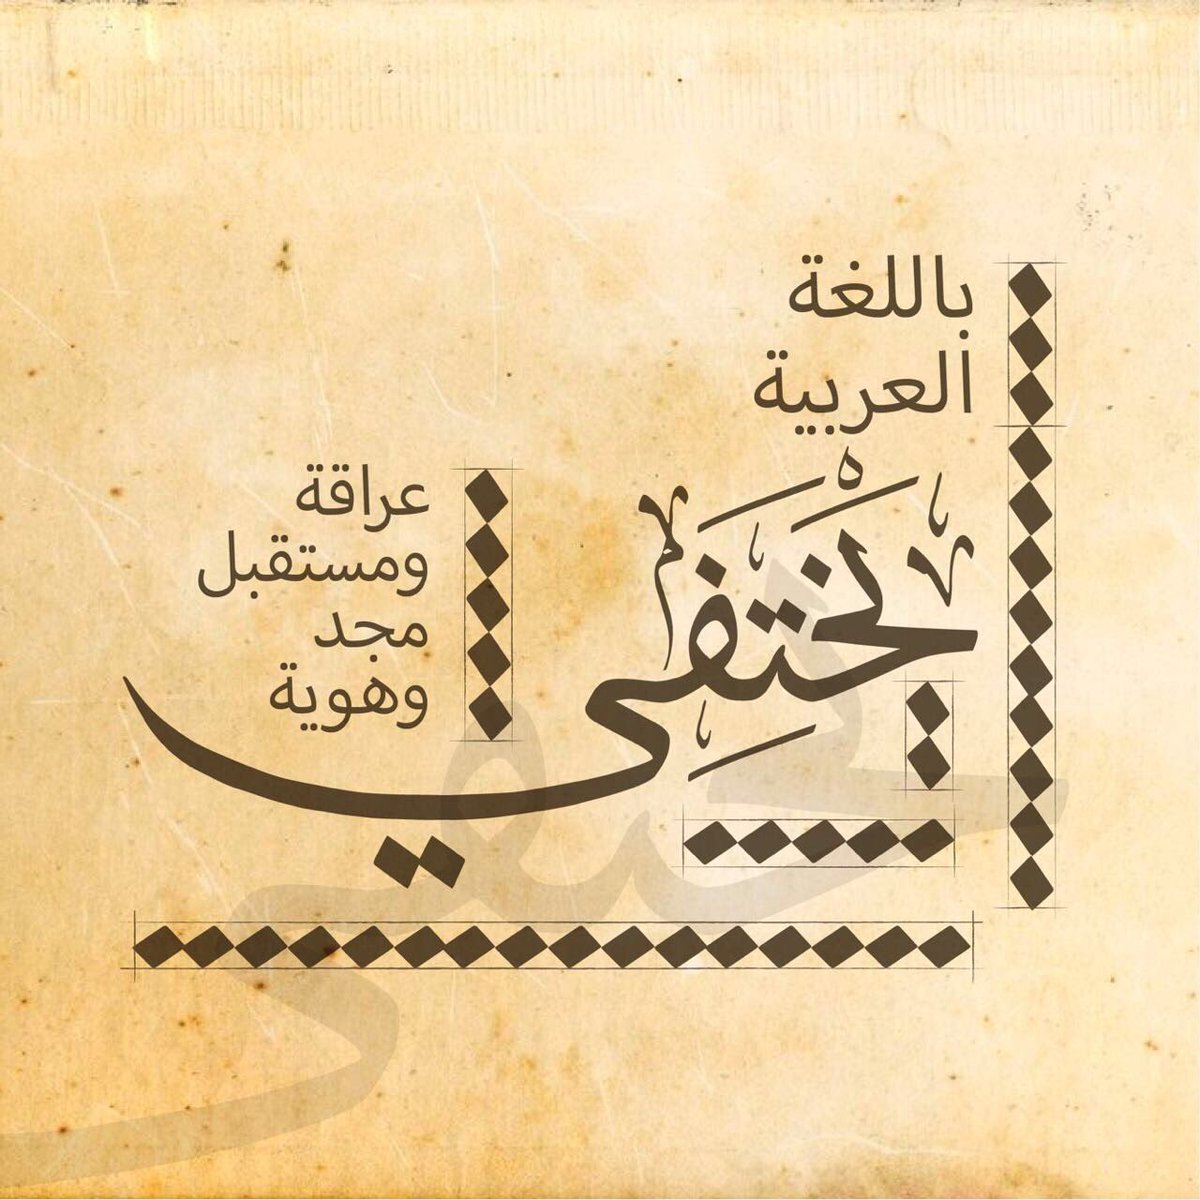 باللغة
العربية
نحتفي
عراقة
ومستقبل
مجد
وهوية